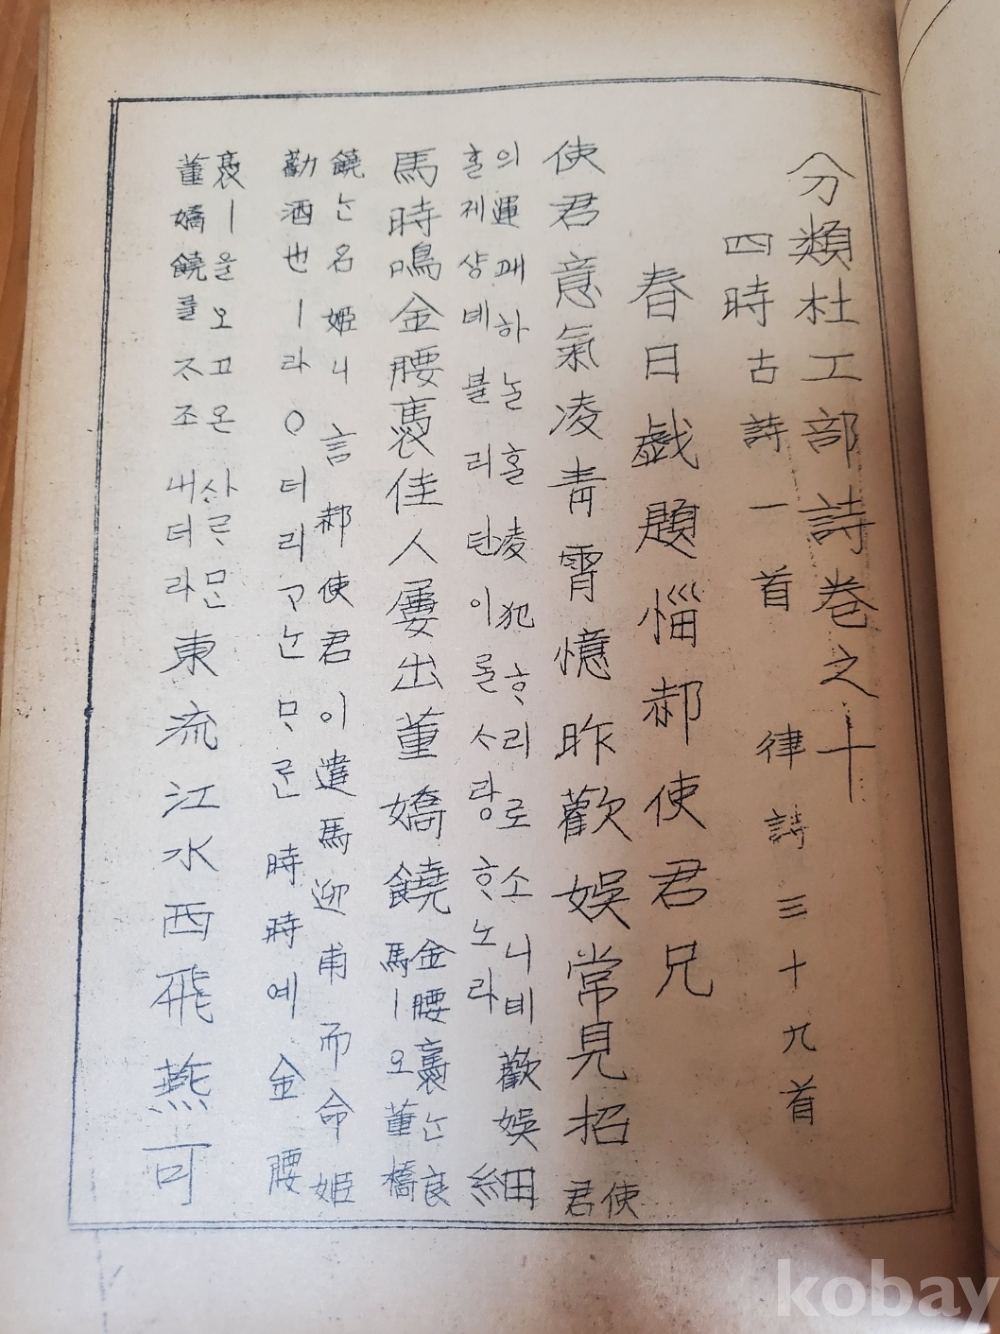 分類杜工部詩卷之十
四時古詩一首 律詩三十九首
春日戱題惱郝使君兄
使君意氣凌靑霄憶昨歡娛常見招 使
君
의運매하놀홀凌犯ᄒᆞ리로소니비歡娛
홀제샹녜블리탄이롤ᄉᆞ랑ᄒᆞ노라
細
馬時鳴金腰褭佳人屢出董嬌饒 金腰褭ᄂᆞᆫ良
馬ㅣ오董橋
饒ᄂᆞᆫ名姬니言郝使君이遣馬迎甫而命姬
勸酒也ㅣ라ㅇ터리ᄀᆞᄂᆞᆫᄆᆞᄅᆞᆫ時時예金腰
褭ㅣ올오고온사ᄅᆞᄆᆞᆫ
董嬌饒를ᄌᆞ조내터라
東流江水西飛燕可
kobay